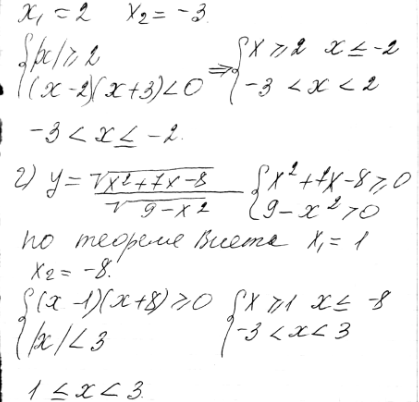 x₁ = 2 x₂ = -3.
{|x| ≥ 2 ⇒ {x ≥ 2 x ≤ -2
{(x-2)(x+3) < 0 {-3 < x < 2
-3 < x ≤ -2.
2) y = √(x²+7x-8) / √(9-x²) {x²+7x-8 ≥ 0
{9-x² > 0
по теореме Виета x₁ = 1
x₂ = -8.
{(x-1)(x+8) ≥ 0 {x ≥ 1 x ≤ -8
{|x| < 3 {-3 < x < 3
1 ≤ x < 3.